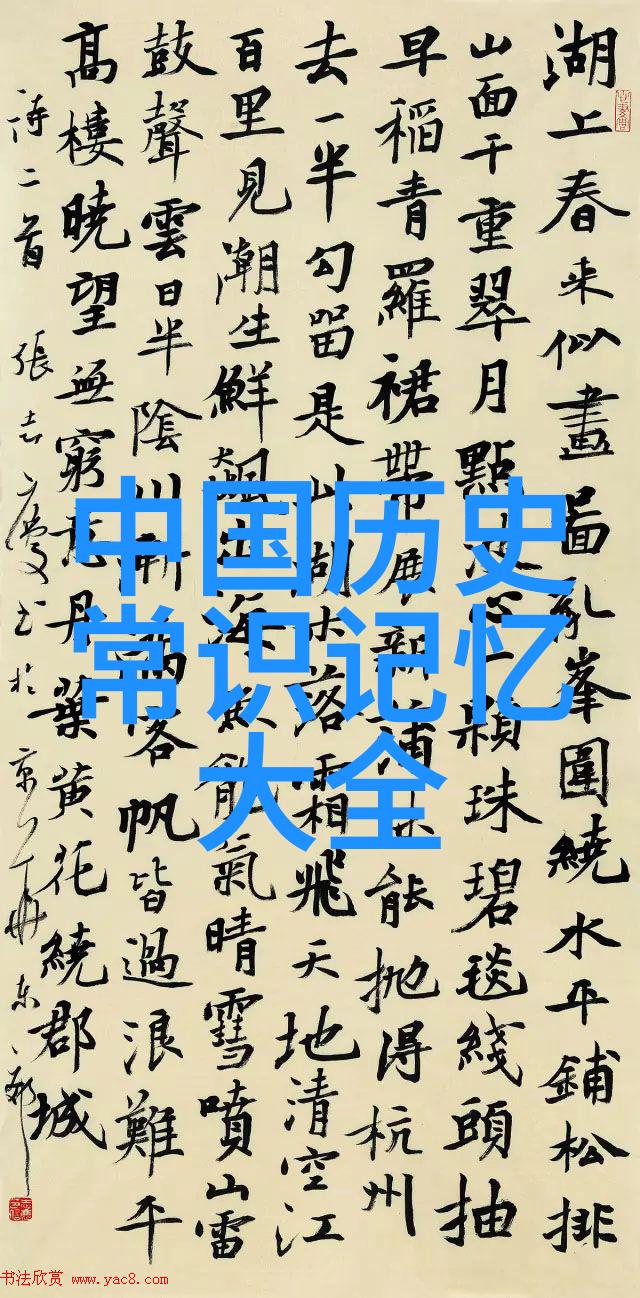 湖上春来似畫圖亂峯圍繞水平鋪松排
山面千重翠月點波心一顆珠碧毯綫頭抽
早稻青羅裙帶展新蒲未能抛得杭州
去一半勾留是此湖水落霜飛天地清空江
百里見潮生鮮飆出海魚龍氣晴雪噴山雷
鼓聲雲日半陰川漸滿客帆皆過浪難平
高樓曉望無窮意丹葉黄花繞郡城
詩二首 張志慶书於京
中国历史
常识记忆
大全
书法欣赏 www.yac8.com